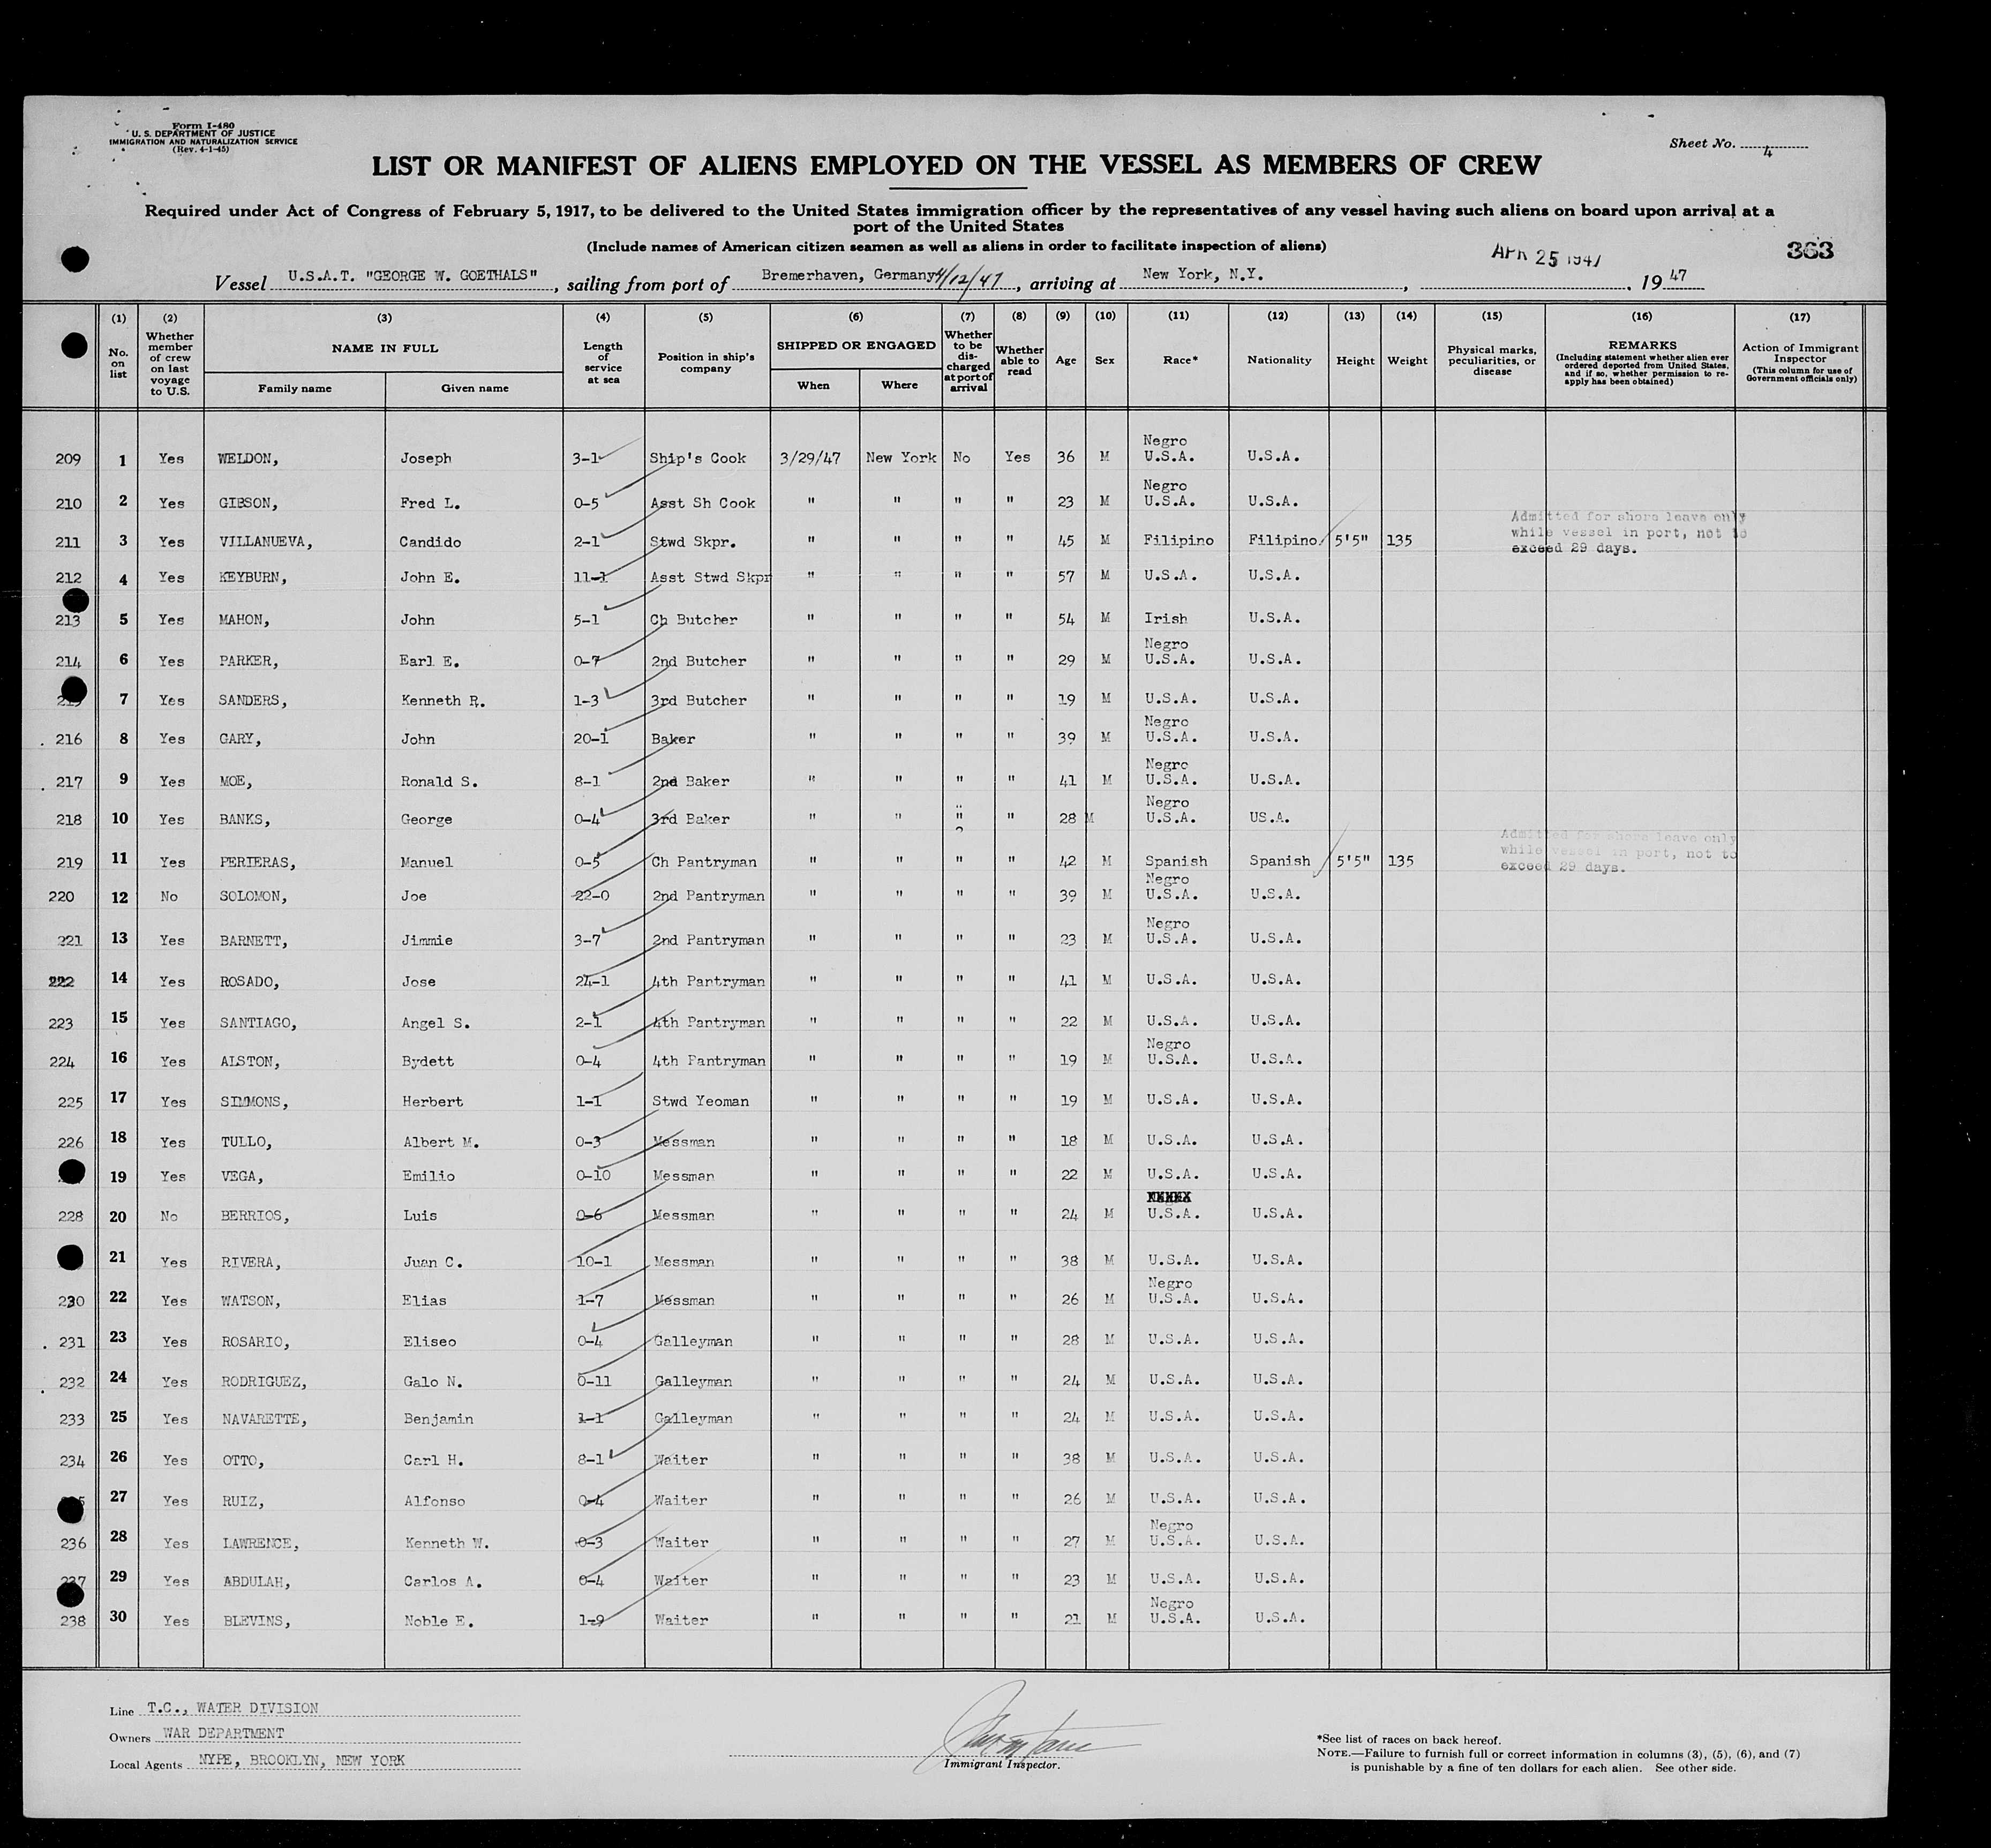 Form I-480
U. S. DEPARTMENT OF JUSTICE
IMMIGRATION AND NATURALIZATION SERVICE
(Rev. 4-1-45)
Sheet No. 4
LIST OR MANIFEST OF ALIENS EMPLOYED ON THE VESSEL AS MEMBERS OF CREW
Required under Act of Congress of February 5, 1917, to be delivered to the United States immigration officer by the representatives of any vessel having such aliens on board upon arrival at a
port of the United States
(Include names of American citizen seamen as well as aliens in order to facilitate inspection of aliens)
APR 25 1947
363
Vessel U.S.A.T. "GEORGE W. GOETHALS", sailing from port of Bremerhaven, Germany 4/12/47, arriving at New York, N.Y., , 1947
(1) No. on list (2) Whether member of crew on last voyage to U.S. (3) NAME IN FULL Family name Given name (4) Length of service at sea (5) Position in ship's company (6) SHIPPED OR ENGAGED When Where (7) Whether to be discharged at port of arrival (8) Whether able to read (9) Age (10) Sex (11) Race* (12) Nationality (13) Height (14) Weight (15) Physical marks, peculiarities, or disease (16) REMARKS (Including statement whether alien ever ordered deported from United States, and if so, whether permission to re-apply has been obtained) (17) Action of Immigrant Inspector (This column for use of Government officials only)
209 1 Yes WELDON, Joseph 3-1 Ship's Cook 3/29/47 New York No Yes 36 M Negro U.S.A. U.S.A.
210 2 Yes GIBSON, Fred L. 0-5 Asst Sh Cook " " " " 23 M Negro U.S.A. U.S.A.
211 3 Yes VILLANUEVA, Candido 2-1 Stwd Skpr. " " " " 45 M Filipino Filipino 5'5" 135 Admitted for shore leave only while vessel in port, not to exceed 29 days.
212 4 Yes KEYBURN, John E. 11-1 Asst Stwd Skpr " " " " 57 M U.S.A. U.S.A.
213 5 Yes MAHON, John 5-1 Ch Butcher " " " " 54 M Irish U.S.A.
214 6 Yes PARKER, Earl E. 0-7 2nd Butcher " " " " 29 M Negro U.S.A. U.S.A.
7 Yes SANDERS, Kenneth R. 1-3 3rd Butcher " " " " 19 M U.S.A. U.S.A.
216 8 Yes GARY, John 20-1 Baker " " " " 39 M Negro U.S.A. U.S.A.
217 9 Yes MOE, Ronald S. 8-1 2nd Baker " " " " 41 M Negro U.S.A. U.S.A.
218 10 Yes BANKS, George 0-4 3rd Baker " " " " 28 M Negro U.S.A. US.A.
219 11 Yes PERIERAS, Manuel 0-5 Ch Pantryman " " " " 42 M Spanish Spanish 5'5" 135 Admitted for shore leave only while vessel in port, not to exceed 29 days.
220 12 No SOLOMON, Joe 22-0 2nd Pantryman " " " " 39 M Negro U.S.A. U.S.A.
221 13 Yes BARNETT, Jimmie 3-7 2nd Pantryman " " " " 23 M Negro U.S.A. U.S.A.
222 14 Yes ROSADO, Jose 24-1 4th Pantryman " " " " 41 M U.S.A. U.S.A.
223 15 Yes SANTIAGO, Angel S. 2-1 4th Pantryman " " " " 22 M U.S.A. U.S.A.
224 16 Yes ALSTON, Bydett 0-4 4th Pantryman " " " " 19 M Negro U.S.A. U.S.A.
225 17 Yes SIMMONS, Herbert 1-1 Stwd Yeoman " " " " 19 M U.S.A. U.S.A.
226 18 Yes TULLO, Albert M. 0-3 Messman " " " " 18 M U.S.A. U.S.A.
19 Yes VEGA, Emilio 0-10 Messman " " " " 22 M U.S.A. U.S.A.
228 20 No BERRIOS, Luis 0-6 Messman " " " " 24 M U.S.A. U.S.A.
21 Yes RIVERA, Juan C. 10-1 Messman " " " " 38 M U.S.A. U.S.A.
230 22 Yes WATSON, Elias 1-7 Messman " " " " 26 M Negro U.S.A. U.S.A.
231 23 Yes ROSARIO, Eliseo 0-4 Galleyman " " " " 28 M U.S.A. U.S.A.
232 24 Yes RODRIGUEZ, Galo N. 0-11 Galleyman " " " " 24 M U.S.A. U.S.A.
233 25 Yes NAVARETTE, Benjamin 1-1 Galleyman " " " " 24 M U.S.A. U.S.A.
234 26 Yes OTTO, Carl H. 8-1 Waiter " " " " 38 M U.S.A. U.S.A.
27 Yes RUIZ, Alfonso 0-4 Waiter " " " " 26 M U.S.A. U.S.A.
236 28 Yes LAWRENCE, Kenneth W. 0-3 Waiter " " " " 27 M Negro U.S.A. U.S.A.
237 29 Yes ABDULAH, Carlos A. 0-4 Waiter " " " " 23 M U.S.A. U.S.A.
238 30 Yes BLEVINS, Noble E. 1-9 Waiter " " " " 21 M Negro U.S.A. U.S.A.
Line T.C., WATER DIVISION
Owners WAR DEPARTMENT
Local Agents NYPE, BROOKLYN, NEW YORK
Immigrant Inspector.
*See list of races on back hereof.
NOTE.—Failure to furnish full or correct information in columns (3), (5), (6), and (7)
is punishable by a fine of ten dollars for each alien. See other side.